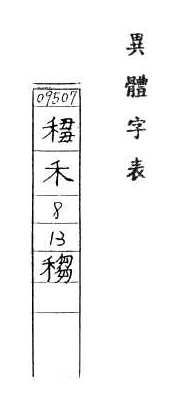 異體字表
09507
禾
8
13
䅳